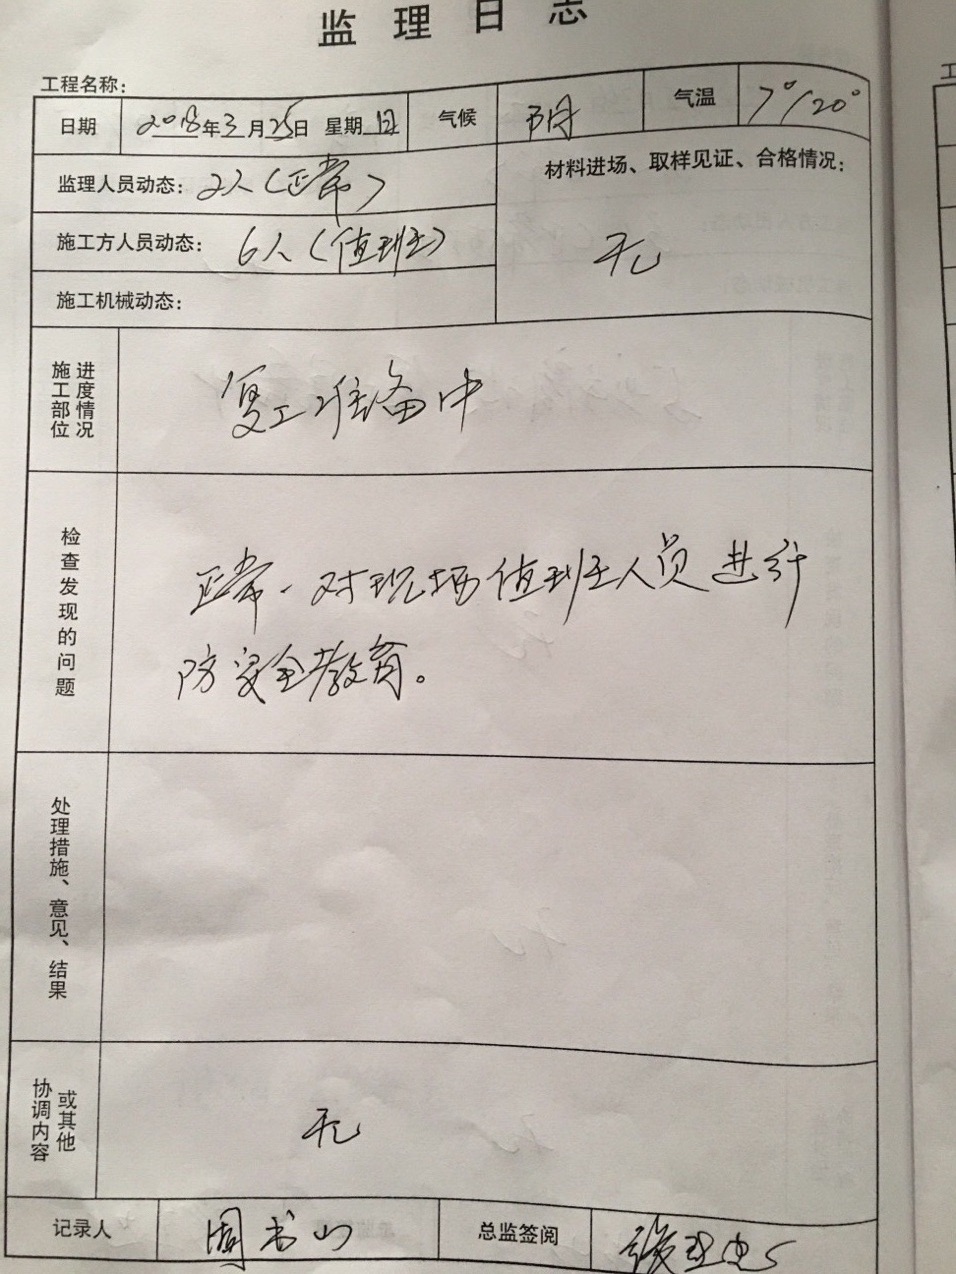 监理日志
工程名称：
日期 2018年3月25日 星期日 气候 阴 气温 7°/20°
监理人员动态： 2人（正常）
材料进场、取样见证、合格情况：
无
施工方人员动态： 6人（值班）
施工机械动态：
施工部位进度情况
复工准备中
检查发现的问题
正常、对现场值班人员进行
防安全教育。
处理措施、意见、结果
协调内容或其他
无
记录人 周书山 总监签阅